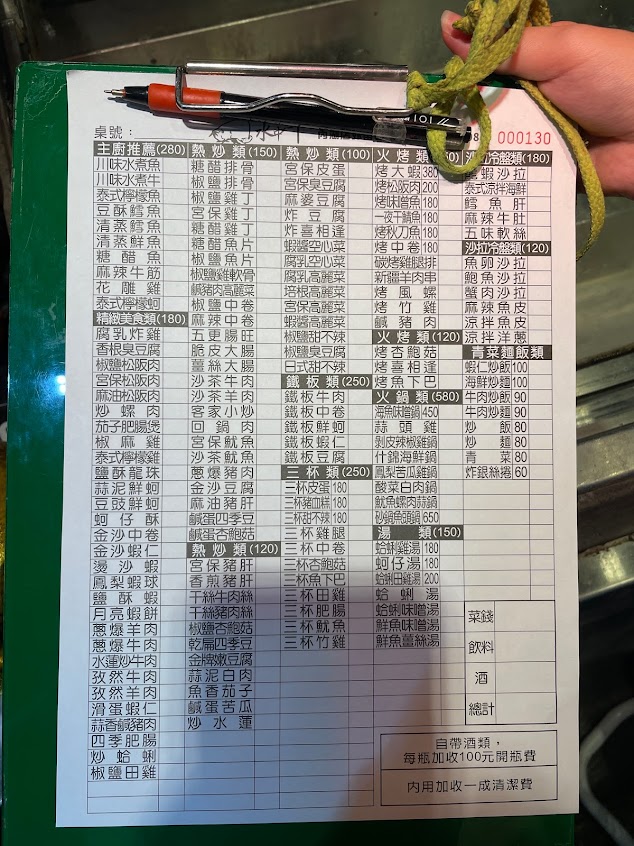 桌號：
000130
主廚推薦(280)
川味水煮魚
川味水煮牛
泰式檸檬魚
豆酥鱈魚
清蒸鱈魚
清蒸鮮魚
糖醋魚
麻辣牛筋
花雕雞
泰式檸檬蚵
精緻美食類(180)
腐乳炸雞
香根臭豆腐
椒鹽松阪肉
宮保松阪肉
麻油松阪肉
炒螺肉
茄子肥腸煲
椒麻雞
泰式檸檬雞
鹽酥龍珠
蒜泥鮮蚵
豆豉鮮蚵
蚵仔酥
金沙中卷
金沙蝦仁
燙沙蝦
鳳梨蝦球
鹽酥蝦
月亮蝦餅
蔥爆羊肉
蔥爆牛肉
水蓮炒牛肉
孜然牛肉
孜然羊肉
滑蛋蝦仁
蒜香鹹豬肉
四季肥腸
炒蛤蜊
椒鹽田雞
熱炒類(150)
糖醋排骨
椒鹽排骨
椒鹽雞丁
宮保雞丁
糖醋雞丁
糖醋魚片
椒鹽魚片
椒鹽雞軟骨
鹹豬肉高麗菜
椒鹽中卷
麻辣中卷
五更腸旺
脆皮大腸
薑絲大腸
沙茶牛肉
沙茶羊肉
客家小炒
回鍋肉
宮保魷魚
沙茶魷魚
蔥爆豬肉
金沙豆腐
麻油豬肝
鹹蛋四季豆
鹹蛋杏鮑菇
熱炒類(120)
宮保豬肝
香煎豬肝
干絲牛肉絲
干絲豬肉絲
椒鹽杏鮑菇
乾扁四季豆
金牌嫩豆腐
蒜泥白肉
魚香茄子
鹹蛋苦瓜
炒水蓮
熱炒類(100)
宮保皮蛋
宮保臭豆腐
麻婆豆腐
炸豆腐
炸喜相逢
蝦醬空心菜
腐乳空心菜
腐乳高麗菜
培根高麗菜
宮保高麗菜
蝦醬高麗菜
椒鹽甜不辣
椒鹽臭豆腐
日式甜不辣
鐵板類(250)
鐵板牛肉
鐵板中卷
鐵板鮮蚵
鐵板蝦仁
鐵板豆腐
三杯類(250)
三杯皮蛋180
三杯豬血糕180
三杯甜不辣180
三杯雞腿
三杯中卷
三杯杏鮑菇
三杯魚下巴
三杯田雞
三杯肥腸
三杯魷魚
三杯竹雞
火烤類
烤大蝦380
烤松阪肉200
烤味噌魚180
一夜干鯖魚180
烤秋刀魚180
烤中卷180
碳烤雞腿排
新疆羊肉串
烤風螺
烤竹雞
鹹豬肉
火烤類(120)
烤杏鮑菇
烤喜相逢
烤魚下巴
火鍋類(580)
海魚味噌鍋450
蒜頭雞
剝皮辣椒雞鍋
什錦海鮮鍋
鳳梨苦瓜雞鍋
酸菜白肉鍋
魷魚螺肉蒜鍋
砂鍋魚頭鍋650
湯類(150)
蛤蜊雞湯180
蚵仔湯180
蛤蜊田雞湯200
蛤蜊湯
蛤蜊味噌湯
鮮魚味噌湯
鮮魚薑絲湯
沙拉冷盤類(180)
龍蝦沙拉
泰式涼拌海鮮
鱈魚肝
麻辣牛肚
五味軟絲
沙拉冷盤類(120)
魚卵沙拉
鮑魚沙拉
蟹肉沙拉
麻辣魚皮
涼拌魚皮
涼拌洋蔥
青菜麵飯類
蝦仁炒飯100
海鮮炒麵100
牛肉炒飯90
牛肉炒麵90
炒飯80
炒麵80
青菜80
炸銀絲捲60
菜錢
飲料
酒
總計
自帶酒類，
每瓶加收100元開瓶費
內用加收一成清潔費